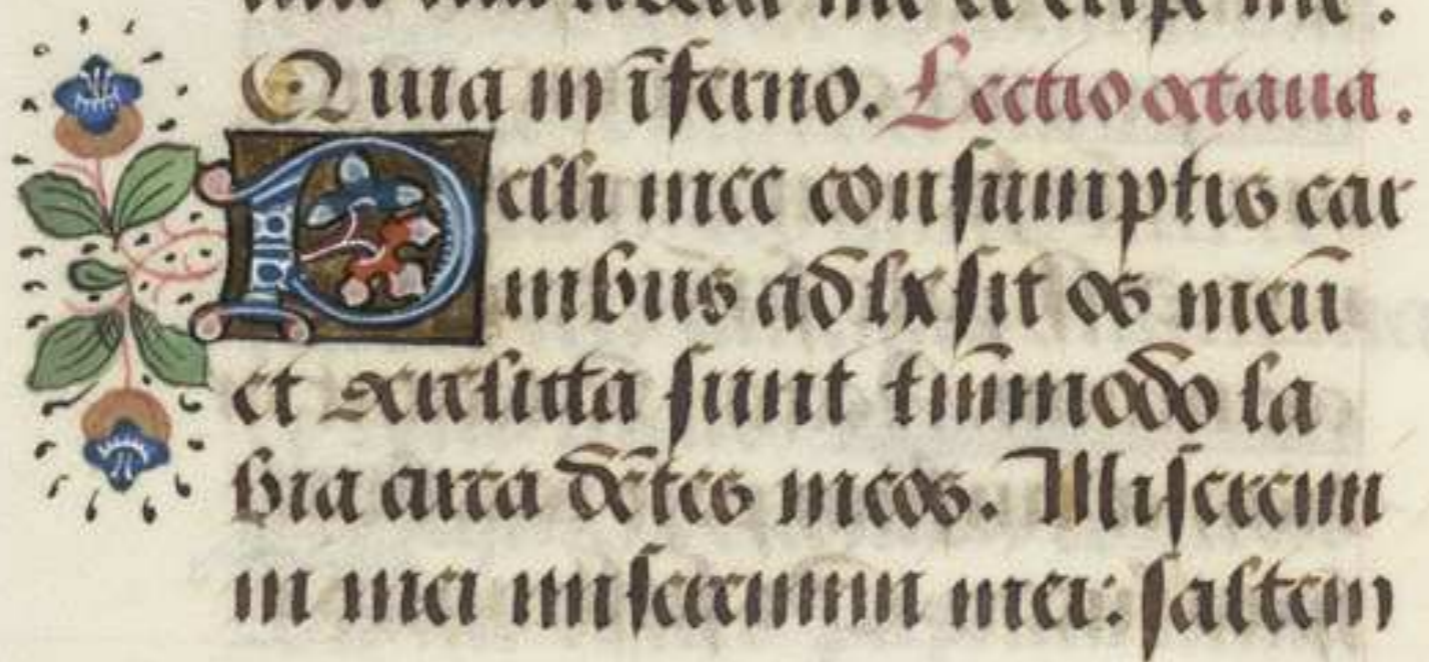 me et eripe me .
Quia in īferno. Lectio octaua.
Pelli mee consumptis car
nibus adhesit os meū
et derelicta sunt tm̄modo la
bia circa dētes meos. Miseremi
ni mei miseremini mei: saltem